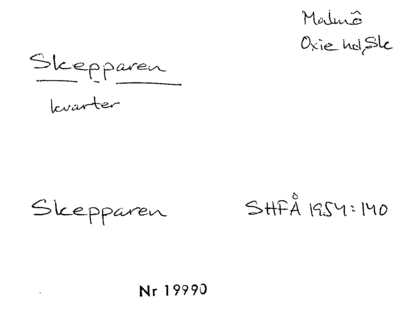 Malmö
Oxie hd, Sk
Skepparen
kvarter
Skepparen SHFÅ 1954:140
Nr 19990